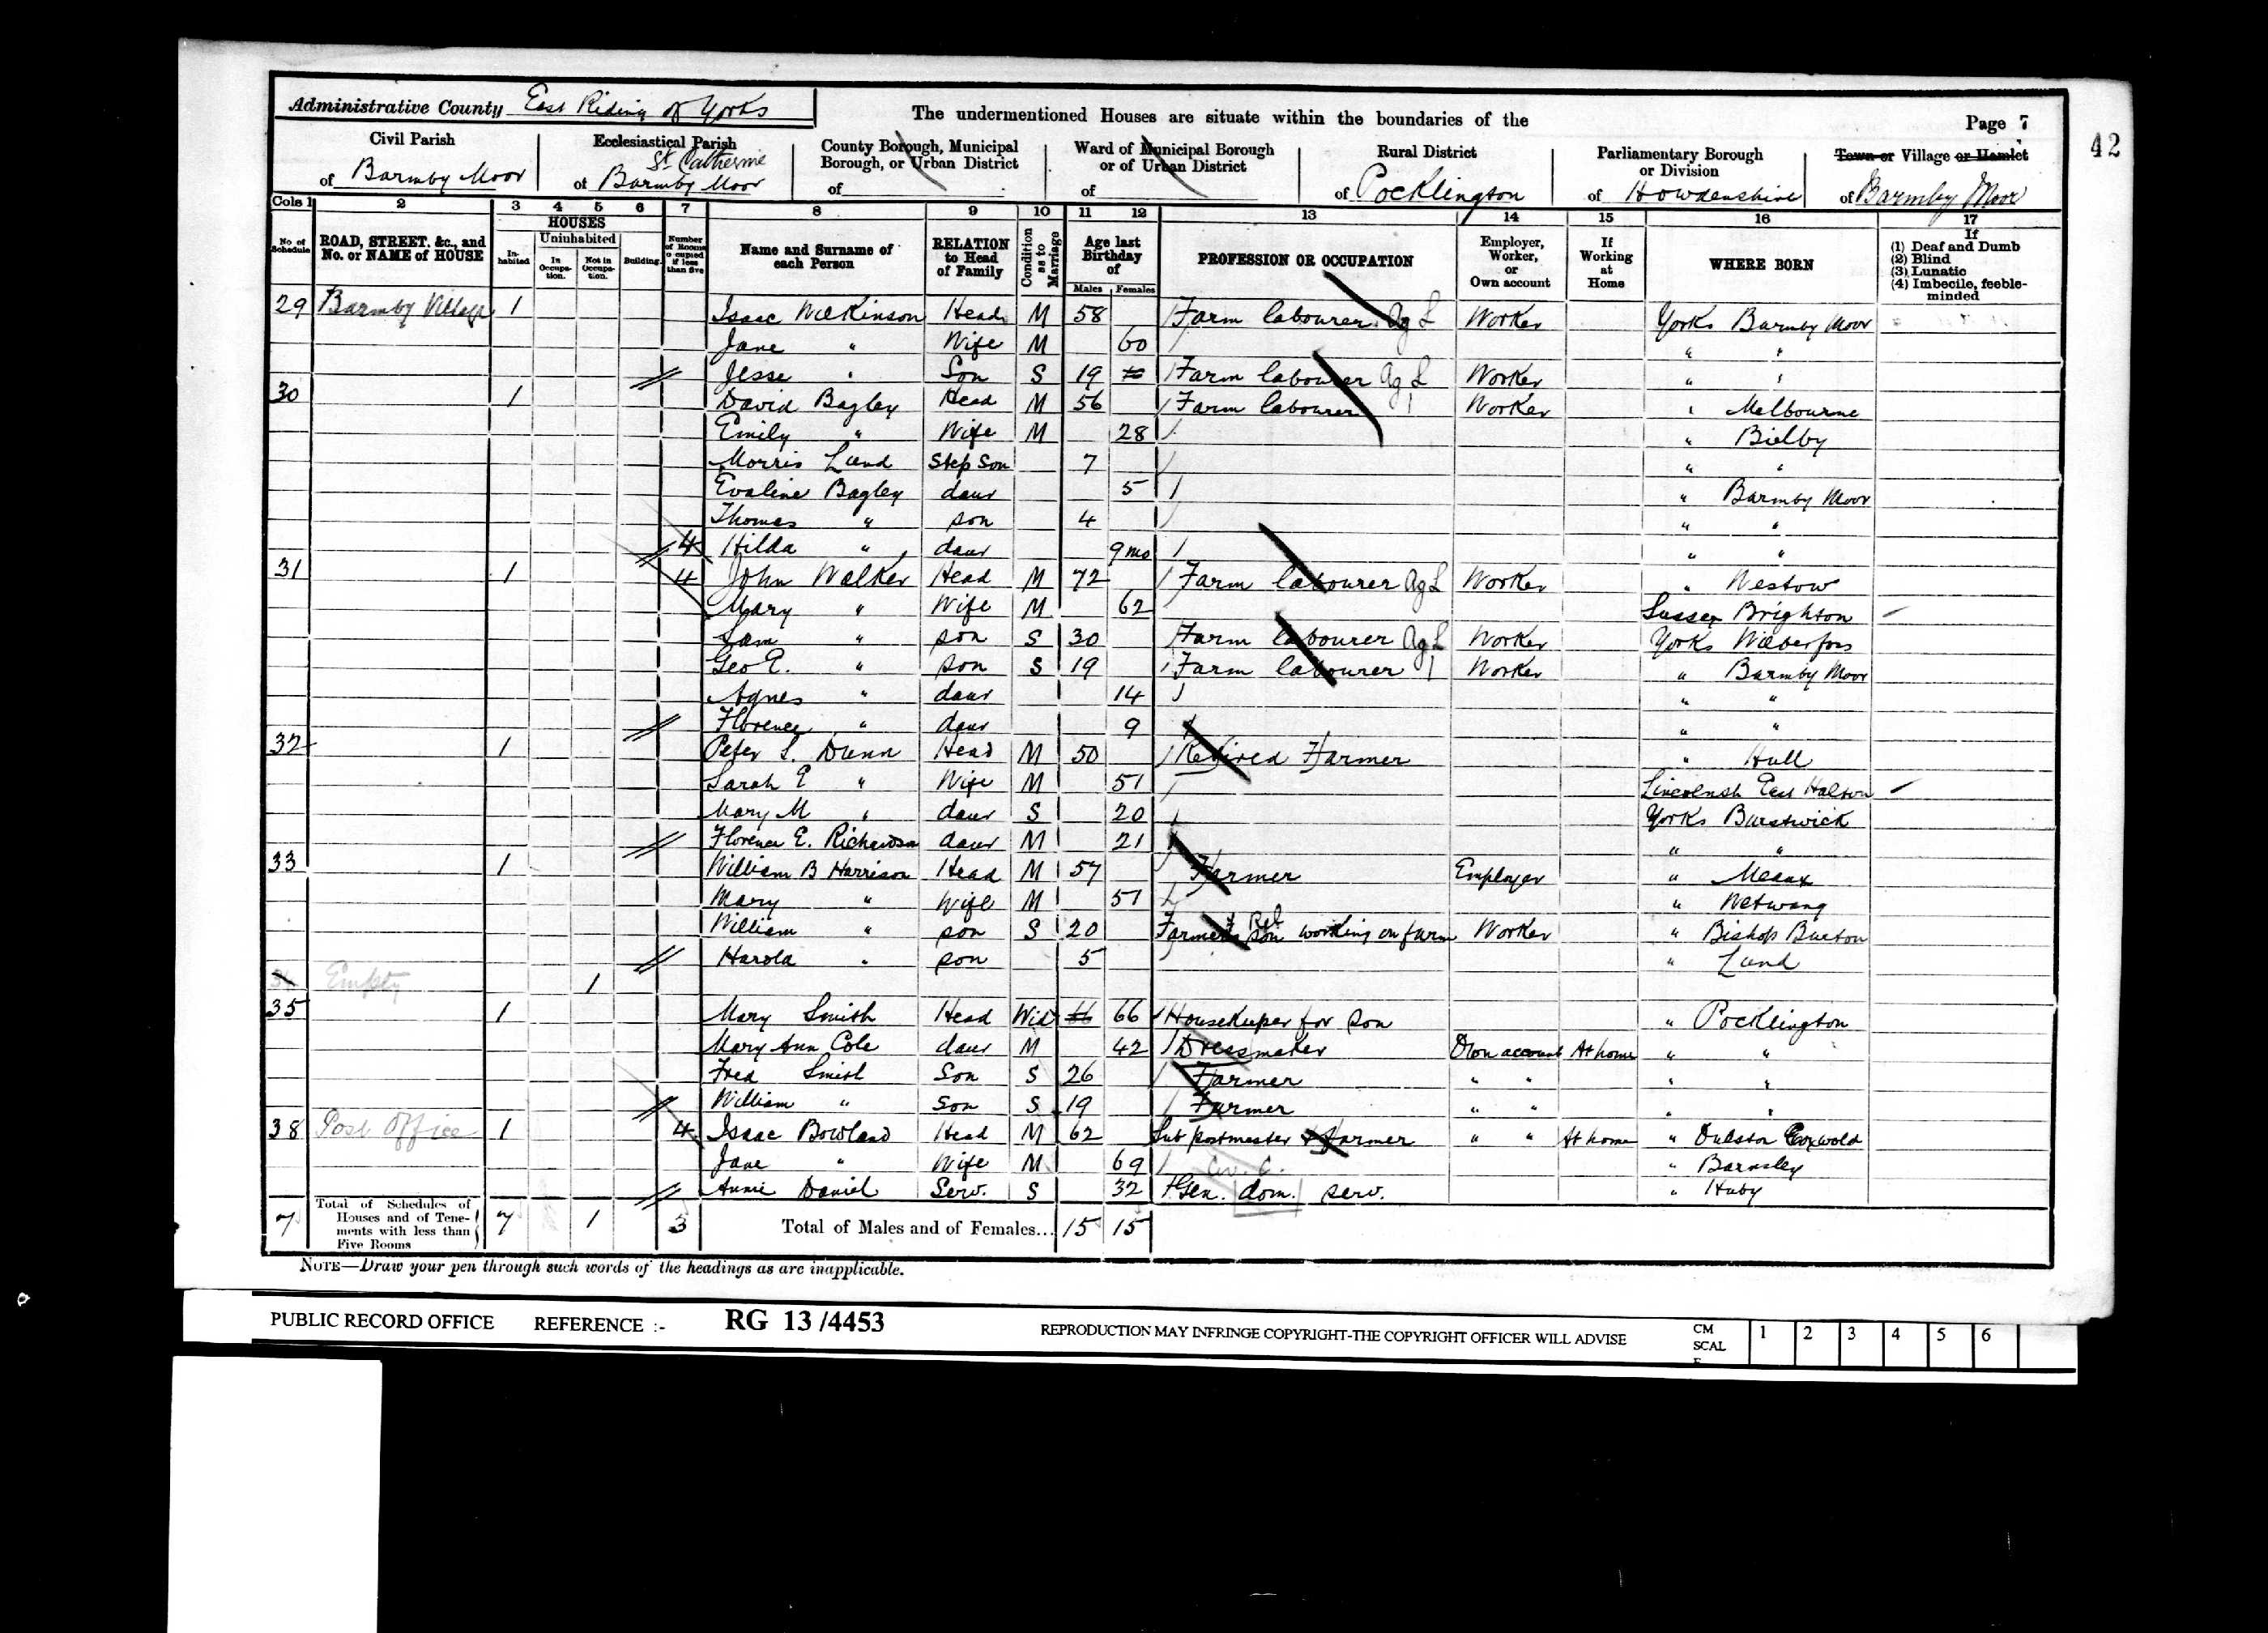 Administrative County East Riding of Yorks
The undermentioned Houses are situate within the boundaries of the
Page 7
42
Civil Parish of Barmby Moor
Ecclesiastical Parish of St. Catherine Barmby Moor
County Borough, Municipal Borough, or Urban District of
Ward of Municipal Borough or of Urban District of
Rural District of Pocklington
Parliamentary Borough or Division of Howdenshire
Town or Village or Hamlet of Barmby Moor
Cols 1 2 3 4 5 6 7 8 9 10 11 12 13 14 15 16 17
No of Schedule
ROAD, STREET, &c., and No. or NAME of HOUSE
HOUSES
Inhabited
Uninhabited
In Occupation.
Not in Occupation.
Building.
Number of Rooms occupied if less than five
Name and Surname of each Person
RELATION to Head of Family
Condition as to Marriage
Age last Birthday of
Males Females
PROFESSION OR OCCUPATION
Employer, Worker, or Own account
If Working at Home
WHERE BORN
If
(1) Deaf and Dumb
(2) Blind
(3) Lunatic
(4) Imbecile, feeble-minded
29 Barmby Village 1 Isaac Wilkinson Head M 58 Farm labourer Ag L Worker Yorks Barmby Moor
Jane " Wife M 60 " "
Jesse " Son S 19 Farm labourer Ag L Worker " "
30 1 David Bagley Head M 56 Farm labourer Worker " Melbourne
Emily " Wife M 28 " Bielby
Morris Lund Step Son 7 " "
Evaline Bagley daur 5 " Barmby Moor
Thomas " son 4 " "
4 Hilda " daur 9 mo " "
31 1 4 John Walker Head M 72 Farm labourer Ag L Worker " Westow
Mary " Wife M 62 Sussex Brighton
Sam " son S 30 Farm labourer Ag L Worker Yorks Wilberfoss
Geo E. " son S 19 Farm labourer Worker " Barmby Moor
Agnes " daur 14 " "
Florence " daur 9 " "
32 1 Peter S. Dunn Head M 50 Retired Farmer " Hull
Sarah E " Wife M 51 Lincolnsh East Halton
Mary M " daur S 20 Yorks Burstwick
Florence E. Richardson daur M 21 " "
33 1 William B Harrison Head M 57 Farmer Employer " Meaux
Mary " Wife M 57 " Wetwang
William " son S 20 Farmer's son working on farm Worker " Bishop Burton
Harold " son 5 " Lund
Empty 1
35 1 Mary Smith Head Wid 66 66 Housekeeper for son " Pocklington
Mary Ann Cole daur M 42 Dressmaker Own account At home " "
Fred Smith Son S 26 Farmer " " " "
William " Son S 19 Farmer " " " "
38 Post Office 1 4 Isaac Bowland Head M 62 Sub postmaster & Farmer " " At home " Oulston Coxwold
Jane " Wife M 69 " Barnsley
Annie Daniel Serv. S 32 Gen. dom. serv. " Huby
7 Total of Schedules of Houses and of Tenements with less than Five Rooms 7 1 3 Total of Males and of Females... 15 15
NOTE—Draw your pen through such words of the headings as are inapplicable.
PUBLIC RECORD OFFICE REFERENCE :- RG 13 /4453 REPRODUCTION MAY INFRINGE COPYRIGHT-THE COPYRIGHT OFFICER WILL ADVISE CM SCALE 1 2 3 4 5 6